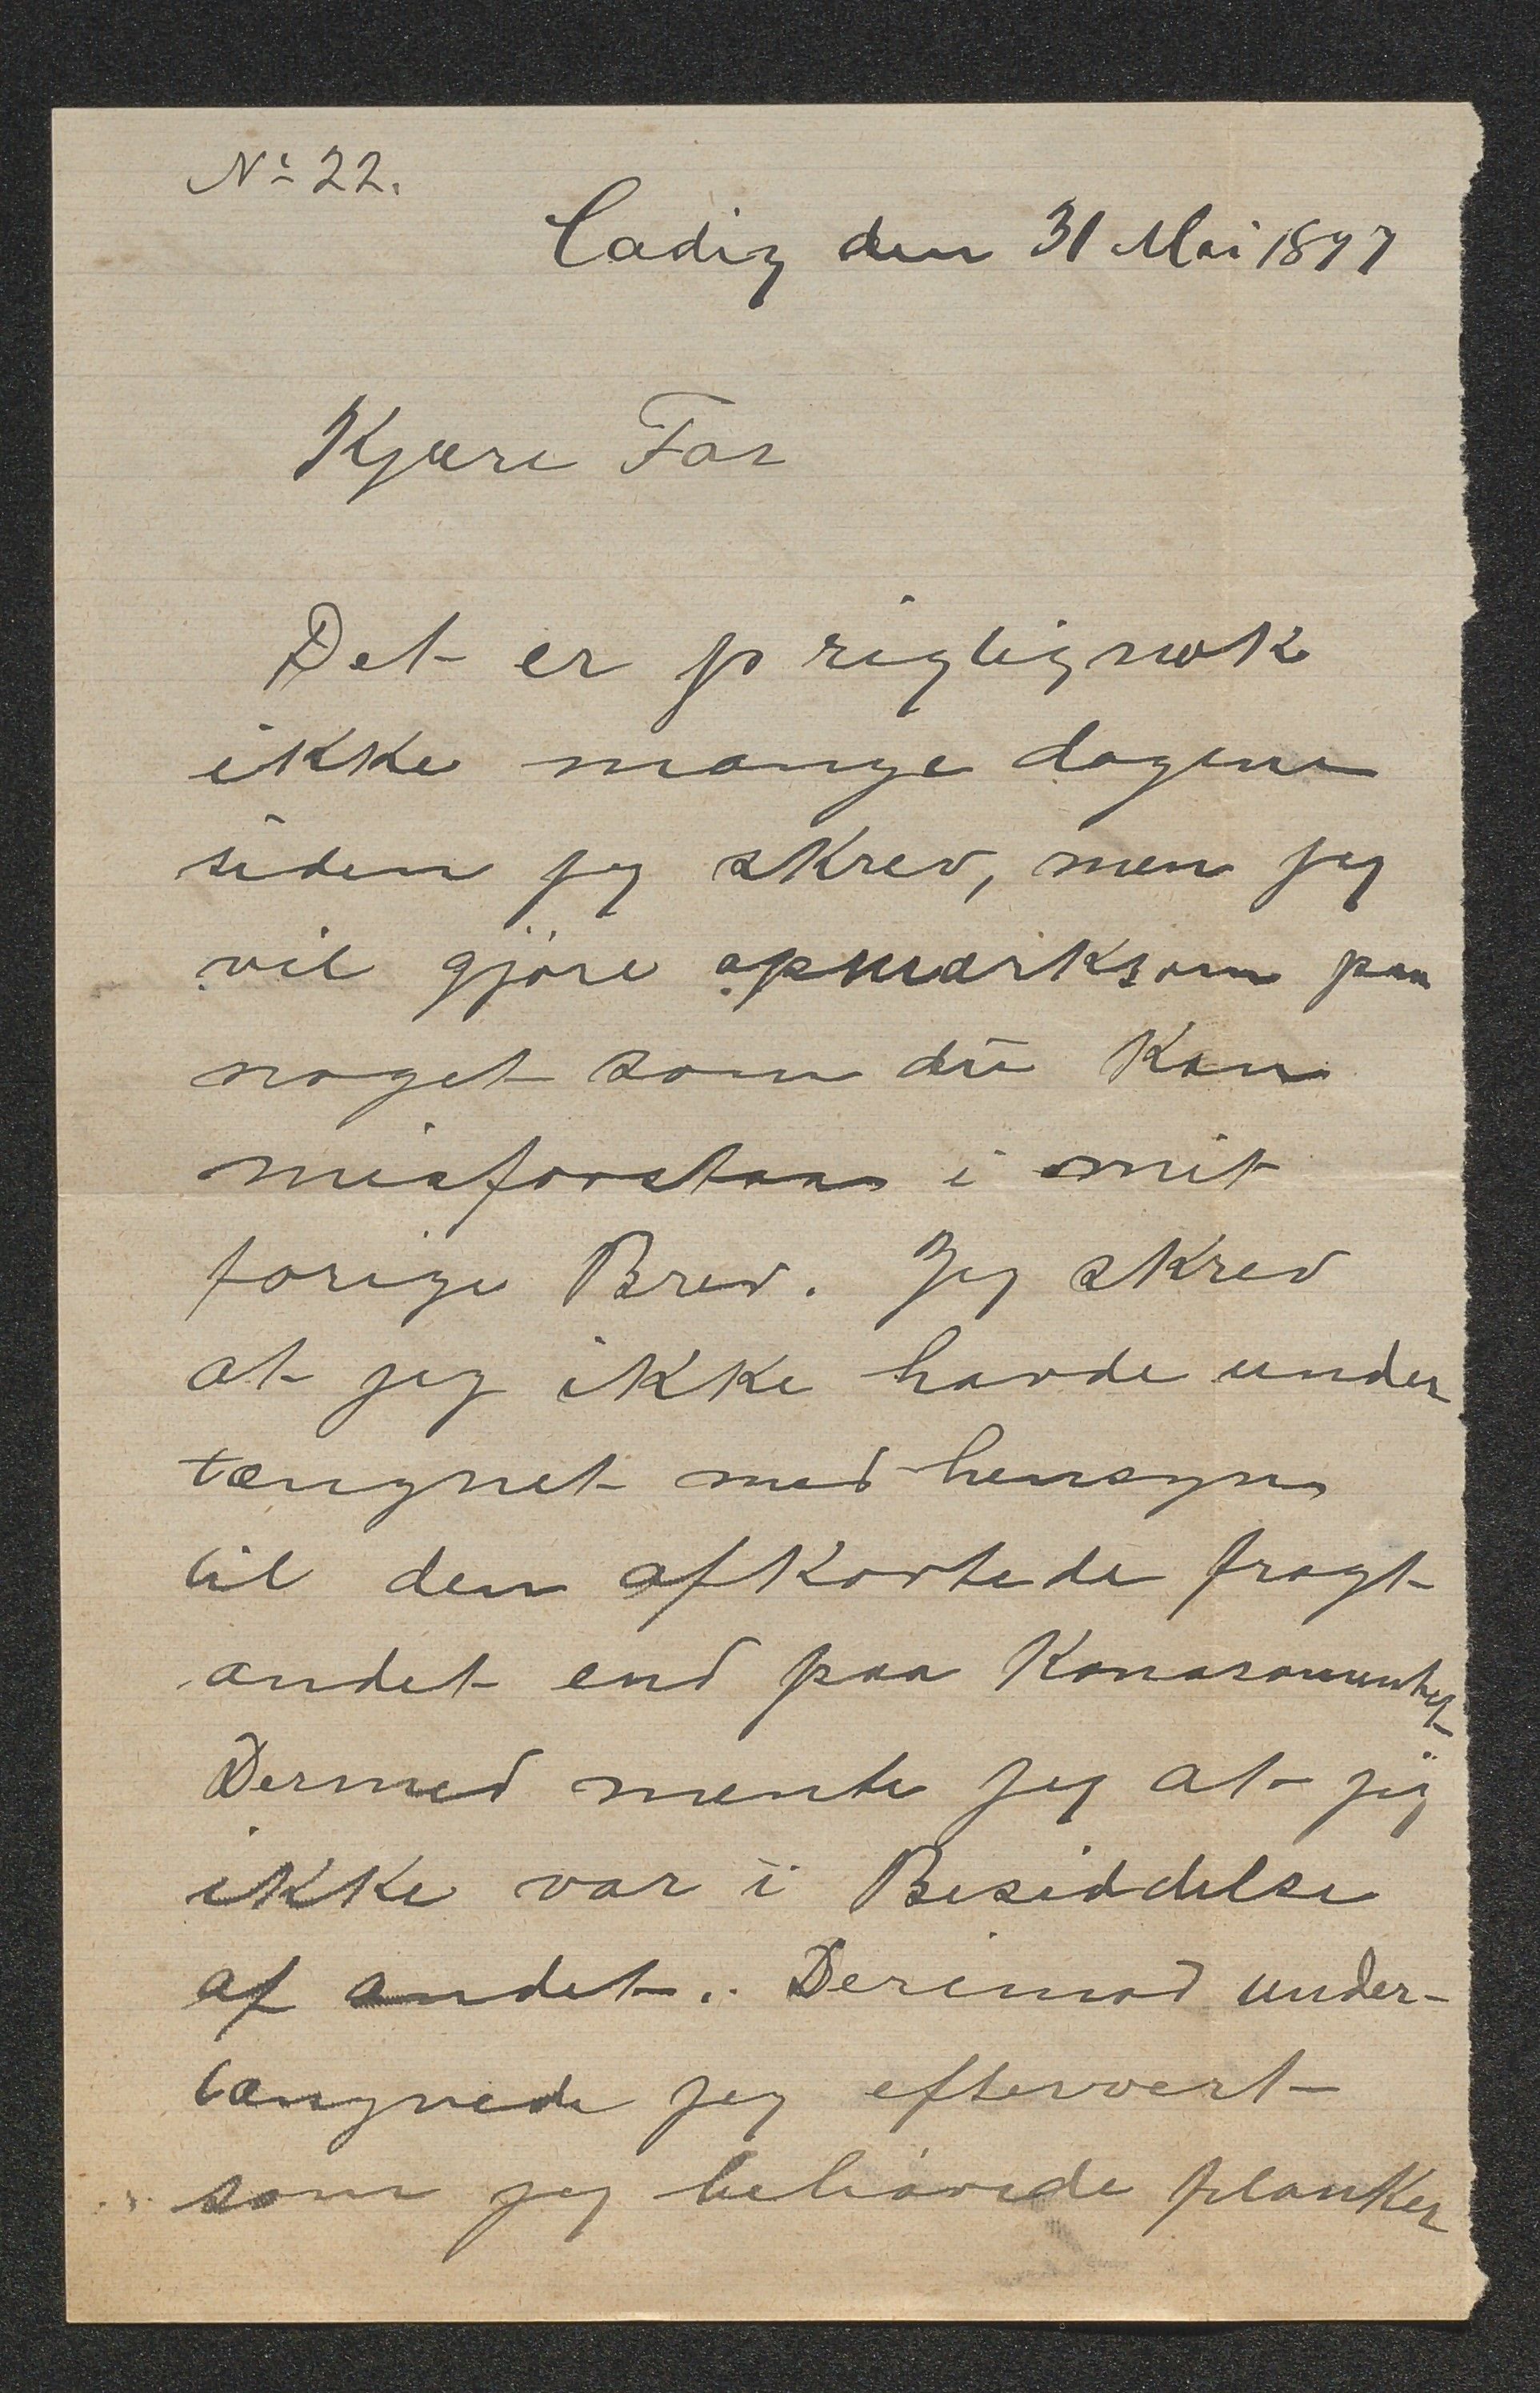 No 22.
Cadiz den 31 Mai 1897
Kjære Far
Det er jo rigtignok
ikke mange dagene
siden jeg skrev, men jeg
vil gjøre opmærksom paa
noget som du kan
misforstaa i mit
forige Brev. Jeg skrev
at jeg ikke havde under
tængnet med hensyn
til den afkortede fragt
andet end paa
Dermed mente jeg at jeg
ikke var i Besiddelse
af andet. Derimod under-
tængnede jeg eftervert
som jeg behøvede planker